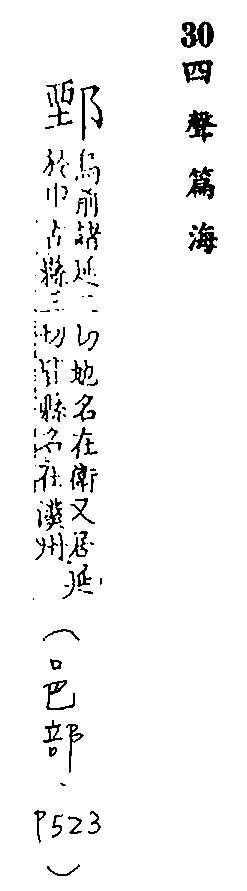 30四聲篇海
鄄烏前諸延二切地名在衛又居延
於巾古縣三切縣名在濮州
(邑部、P523)